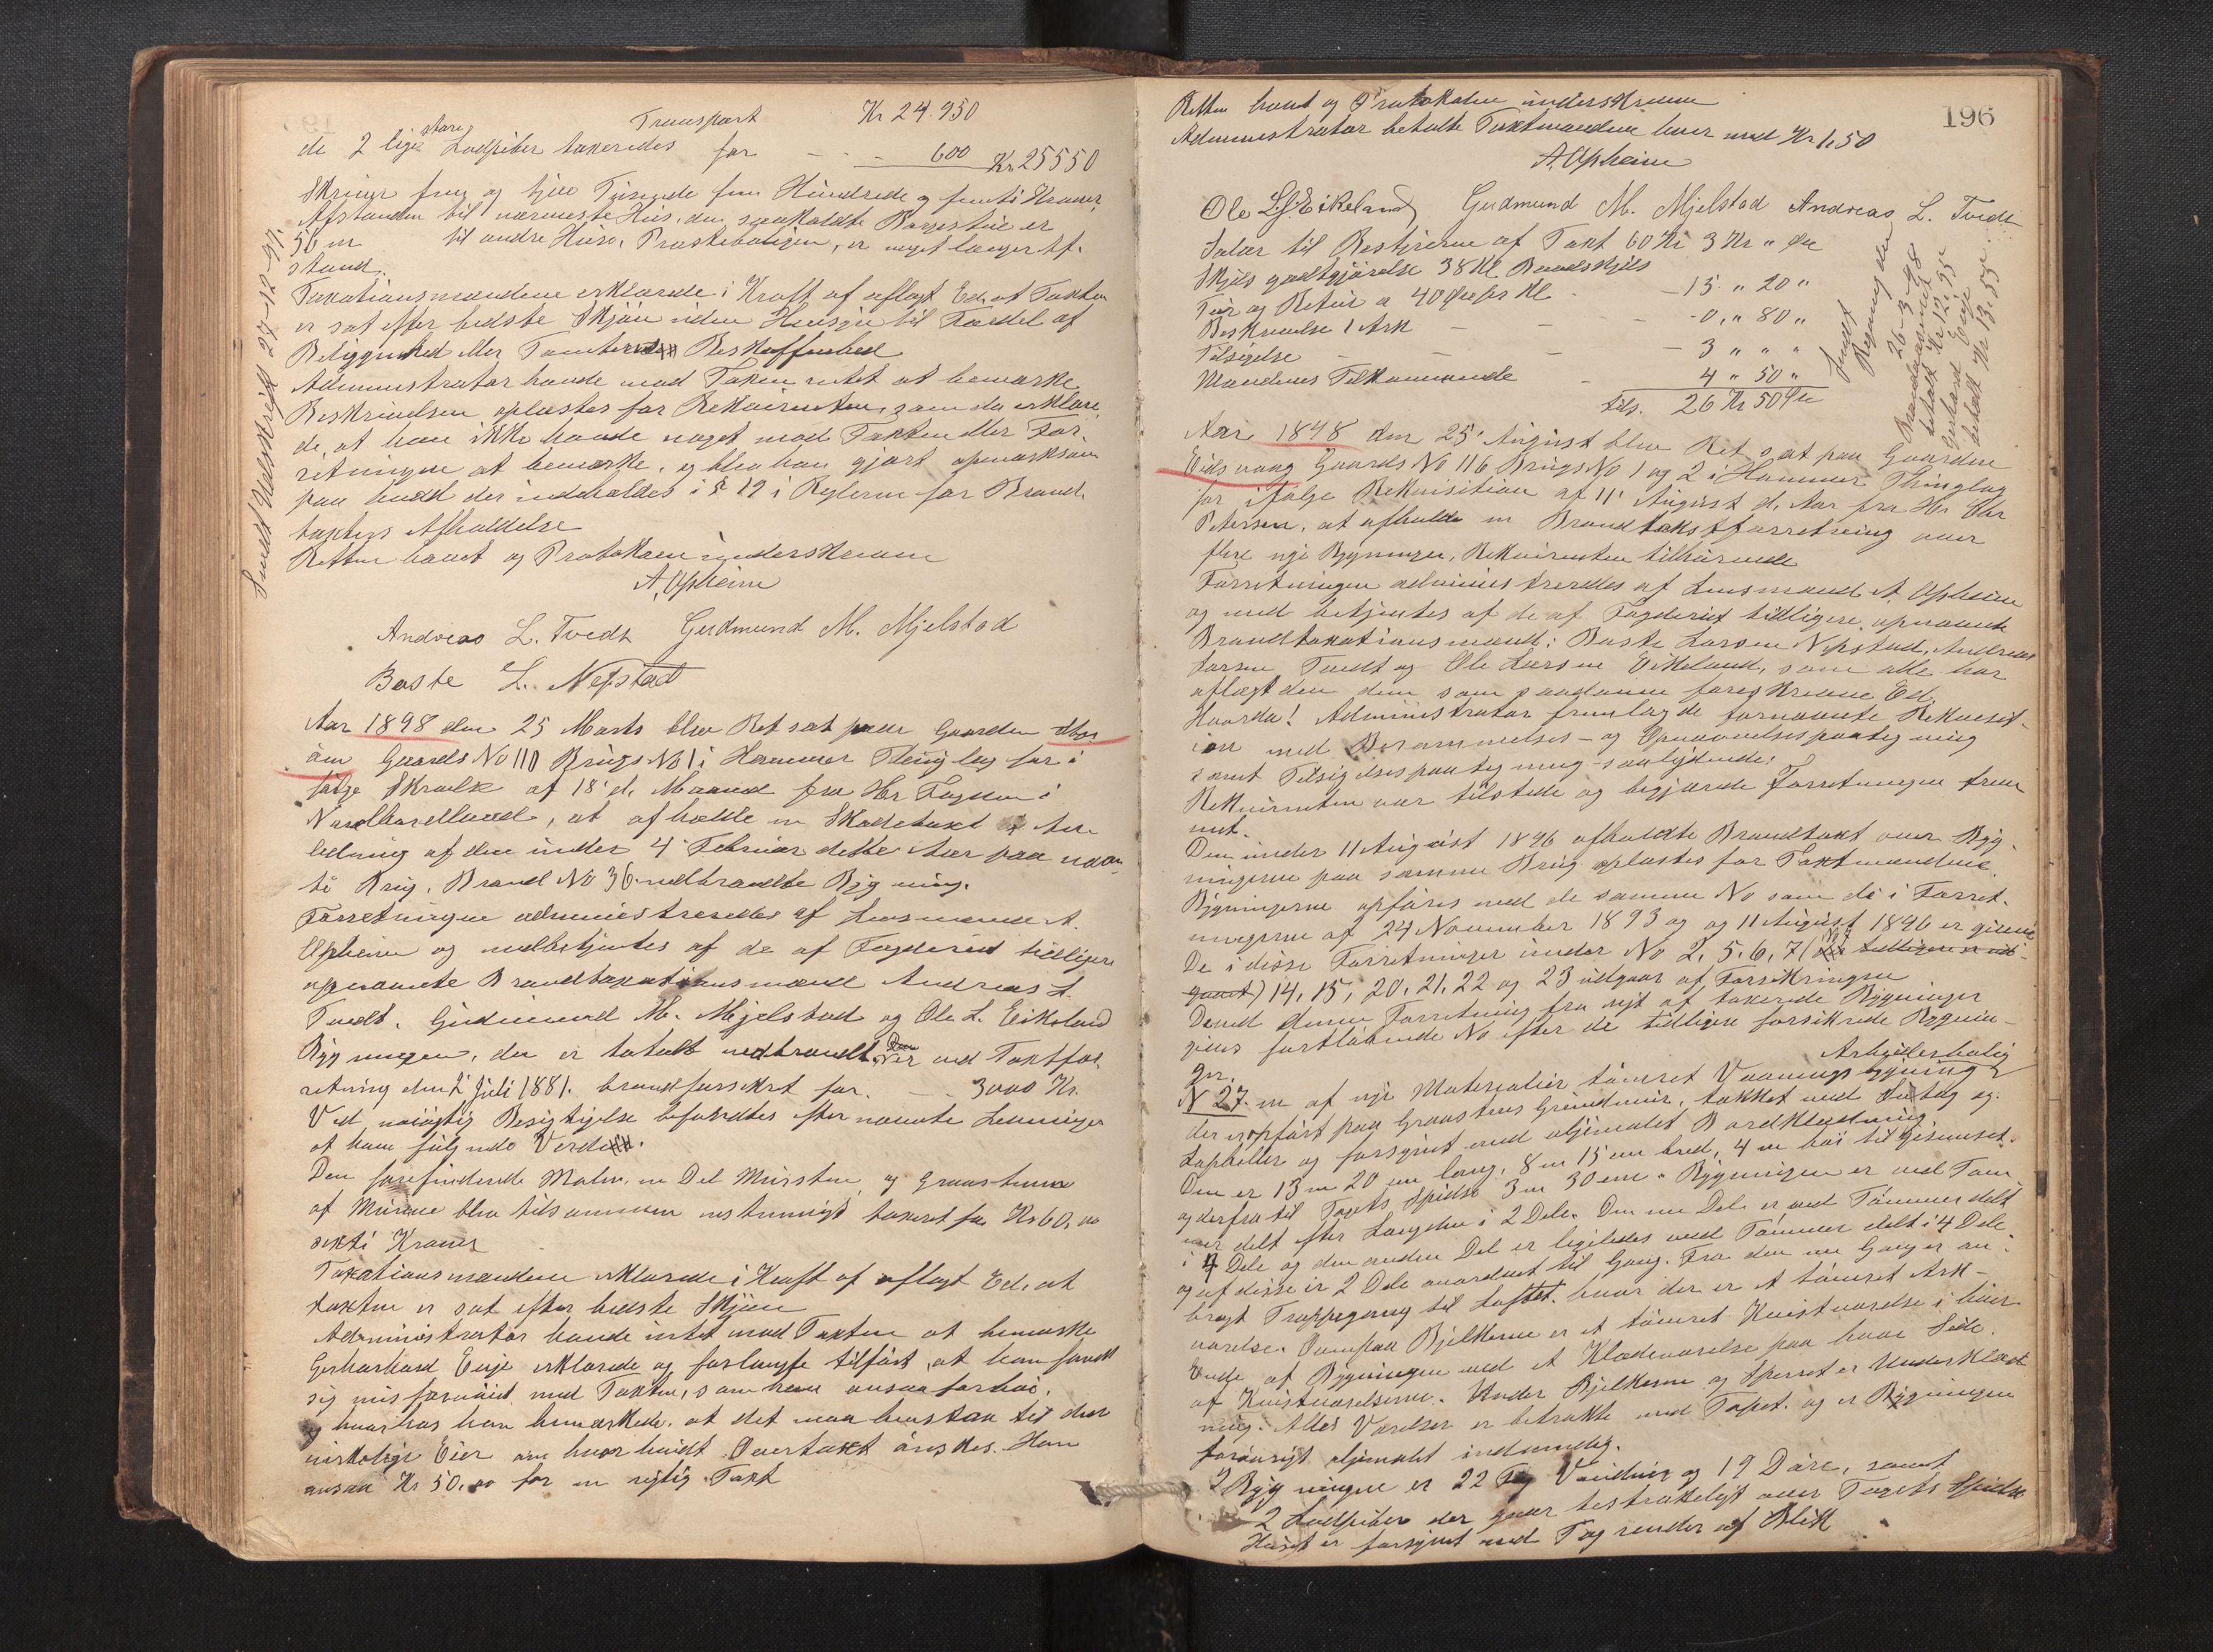 Transport Kr 24.950
de 2 lige store Lodpiber taxeredes for - - - 600 Kr. 25550
Skriver fem og tjve Tusende fem Hundrede og femti Kroner.
Afstanden til nærmeste Hus, den saakaldte Borgestue er
56 m til andre Huse, Præsteboligen, er noget længer Af-
stand.
Taxationsmændene erklærede i Kraft af aflagt Ed, at Taxten
er sat efter bedste Skjøn uden Hensyn til Fordel af
Beliggenhed eller Tomternes Beskaffenhed
Administrator havde mod Taxten intet at bemærke
Beskrivelsen oplæstes for Rekvirenten, som da erklære-
de, at han ikke havde noget mod Taxten eller For-
retningen at bemærke, og blev han gjort opmærksom
paa hvad der indeholdes i § 19 i Reglerne for Brand-
taxters Afholdelse
Retten hævet og Protokolen underskreven
A. Opheim
Andreas L. Tvedt Gudmund M. Mjelstad
Baste L. Nepstad
Sendt Udskrift 27-12-97.
Aar 1898 den 25 Marts blev Ret sat paa Gaarden
Gaards No 110 Brugs No 1 i Hammer Thinglag for i
følge Skrivelse af 18 d. Maaned fra Hr Fogden i
Nordhordland, at afholde en Skadetaxt i An-
ledning af den under 4 Februar dette Aar paa nævn-
te Brug, Brand No 36 nedbrændte Bygning.
Forretningen administreredes af Lensmand A.
Opheim og medbetjentes af de af Fogderiet tidligere
opnævnte Brandtaxationsmænd Andreas L.
Tvedt, Gudmund M. Mjelstad og Ole L. Eikeland
Bygningen, der er totalt nedbrændt. Den er ved Taxtfor-
retning den 2 Juli 1881. brandforsikret for. - - 3000 Kr.
Ved nøiagtig Besigtigelse befandtes efternævnte Levninger
at have følgende Verdi.
Den forefindende Malm, en Del Mursten og Graastenen
af Murene blev tilsammen enstemmigt taxeret for Kr 60,00
sexti Kroner
Taxationsmændene erklærede i Kraft af aflagt Ed, at
taxten er sat efter bedste Skjøn
Administrator havde intet mod Taxten at bemærke
Gerhard Enje erklærede og forlangte tilført, at han fandt
sig misfornøiet med Taxten, som han ansaa for høi.
og hvorhos han bemærkede, at det maa henstaa til den
virkelige Eier om hvorvidt Overtaxt ønskes. Han
ansaa Kr 50,00 for en rigtig Taxt
196
Retten hævet og Protokolen underskreven
Administrator betalte Taxtmændene hver med Kr 1,50
A. Opheim
Ole L. Eikeland Gudmund M. Mjelstad Andreas L. Tvedt
Salær til Bestyreren af Taxt 60 Kr 3 Kr " Øre
Skydsgodtgjørelse 38 Kl. Baadskyds
Tur og Retur a 40 Øre pr Kl. - 15 " 20 "
Beskrivelse 1 Ark - - - 0 " 80 "
Tilsigelse - - - 3 " " "
Mændenes Tilkommende - 4 " 50 "
tils. 26 Kr 50 Øre
Sendt
Regning den
26-3-98
betalt Kr 12.95
Gerhard Enje
betalt Kr 13.55
Aar 1898 den 25' August blev Ret sat paa Gaarden
Eidsvaag Gaards No 116 Brugs No 1 og 2 i Hammer Thinglag
for ifølge Rekvisition af 11' August d. Aar fra Hr
Petersen, at afholde en Brandtaxtforretning over
flere nye Bygninger, Rekvirenten tilhørende
Forretningen administreredes af Lensmand A. Opheim
og med betjentes af de af Fogderiet tidligere opnævnte
Brandtaxationsmænd: Baste Larsen Nepstad, Andreas
Larsen Tvedt og Ole Larsen Eikeland, som alle har
aflagt den dem som saadanne foreskrevne Ed.
Hvorda! Administrator fremlagde fornævnte Rekvisit-
ion med Berammelses- og Opnævnelsespaategning
samt Tilsigelsespaategning saalydende:
Rekvirenten var tilstede og begjærede Forretningen frem-
met.
Den under 11 August 1896 afholdte Brandtaxt over Byg-
ningerne paa samme Brug oplæstes for Taxtmændene.
Bygningerne opføres med de samme No som de i Forret-
ningerne af 24 November 1893 og og 11 August 1896 er givne
De i disse Forretninger under No 2, 5, 6, 7 (
14, 15, 20, 21, 22 og 23 udgaar af Forsikringen
Denne Forretning fra nyt af taxerede Bygninger
gives fortløbende No efter de tidligere forsikrede Bygnin-
ger. Arbeiderbolig
N 27. en af nye Materialier tømret Vaaningsbygning
der er opført paa Graastens Grundmur, tækket med Sutag og
Tapheller og forsynet med oljemalet Bordklædning
Den er 13 m 20 cm lang, 8 m 15 cm bred, 4 m høi til Gesimset.
og derfra til Tagets Spidse 3 m 30 cm. Bygningen er ved Tøm-
mer delt efter Længden i 2 Dele. Den ene Del er ved Tømmer delt
i 4 Dele og den anden Del er ligeledes ved Tømmer delt i 4 Dele
og af disse er 2 Dele anordnet til Gang. Fra den ene Gang er an-
bragt Trappegang til Loftet, hvor der er et tømret Ark-
værelse. Ovenpaa Bjelkerne er et tømret Kvistværelse i hver
Ende af Bygningen med et Klædeværelse paa hver Side
af Kvistværelserne. Under Bjelkerne og Sperret er Underklæd-
ning. Alle Værelser er betrukke med Tapet, og er Bygningen
forøvrigt oljemalet indvendig.
I Bygningen er 22 Fag Vinduer og 19 Døre, samt
2 Lodpiber der gaar bestrækeligt over Tagets Spidse
Huset er forsynet med Tagrender af Blik